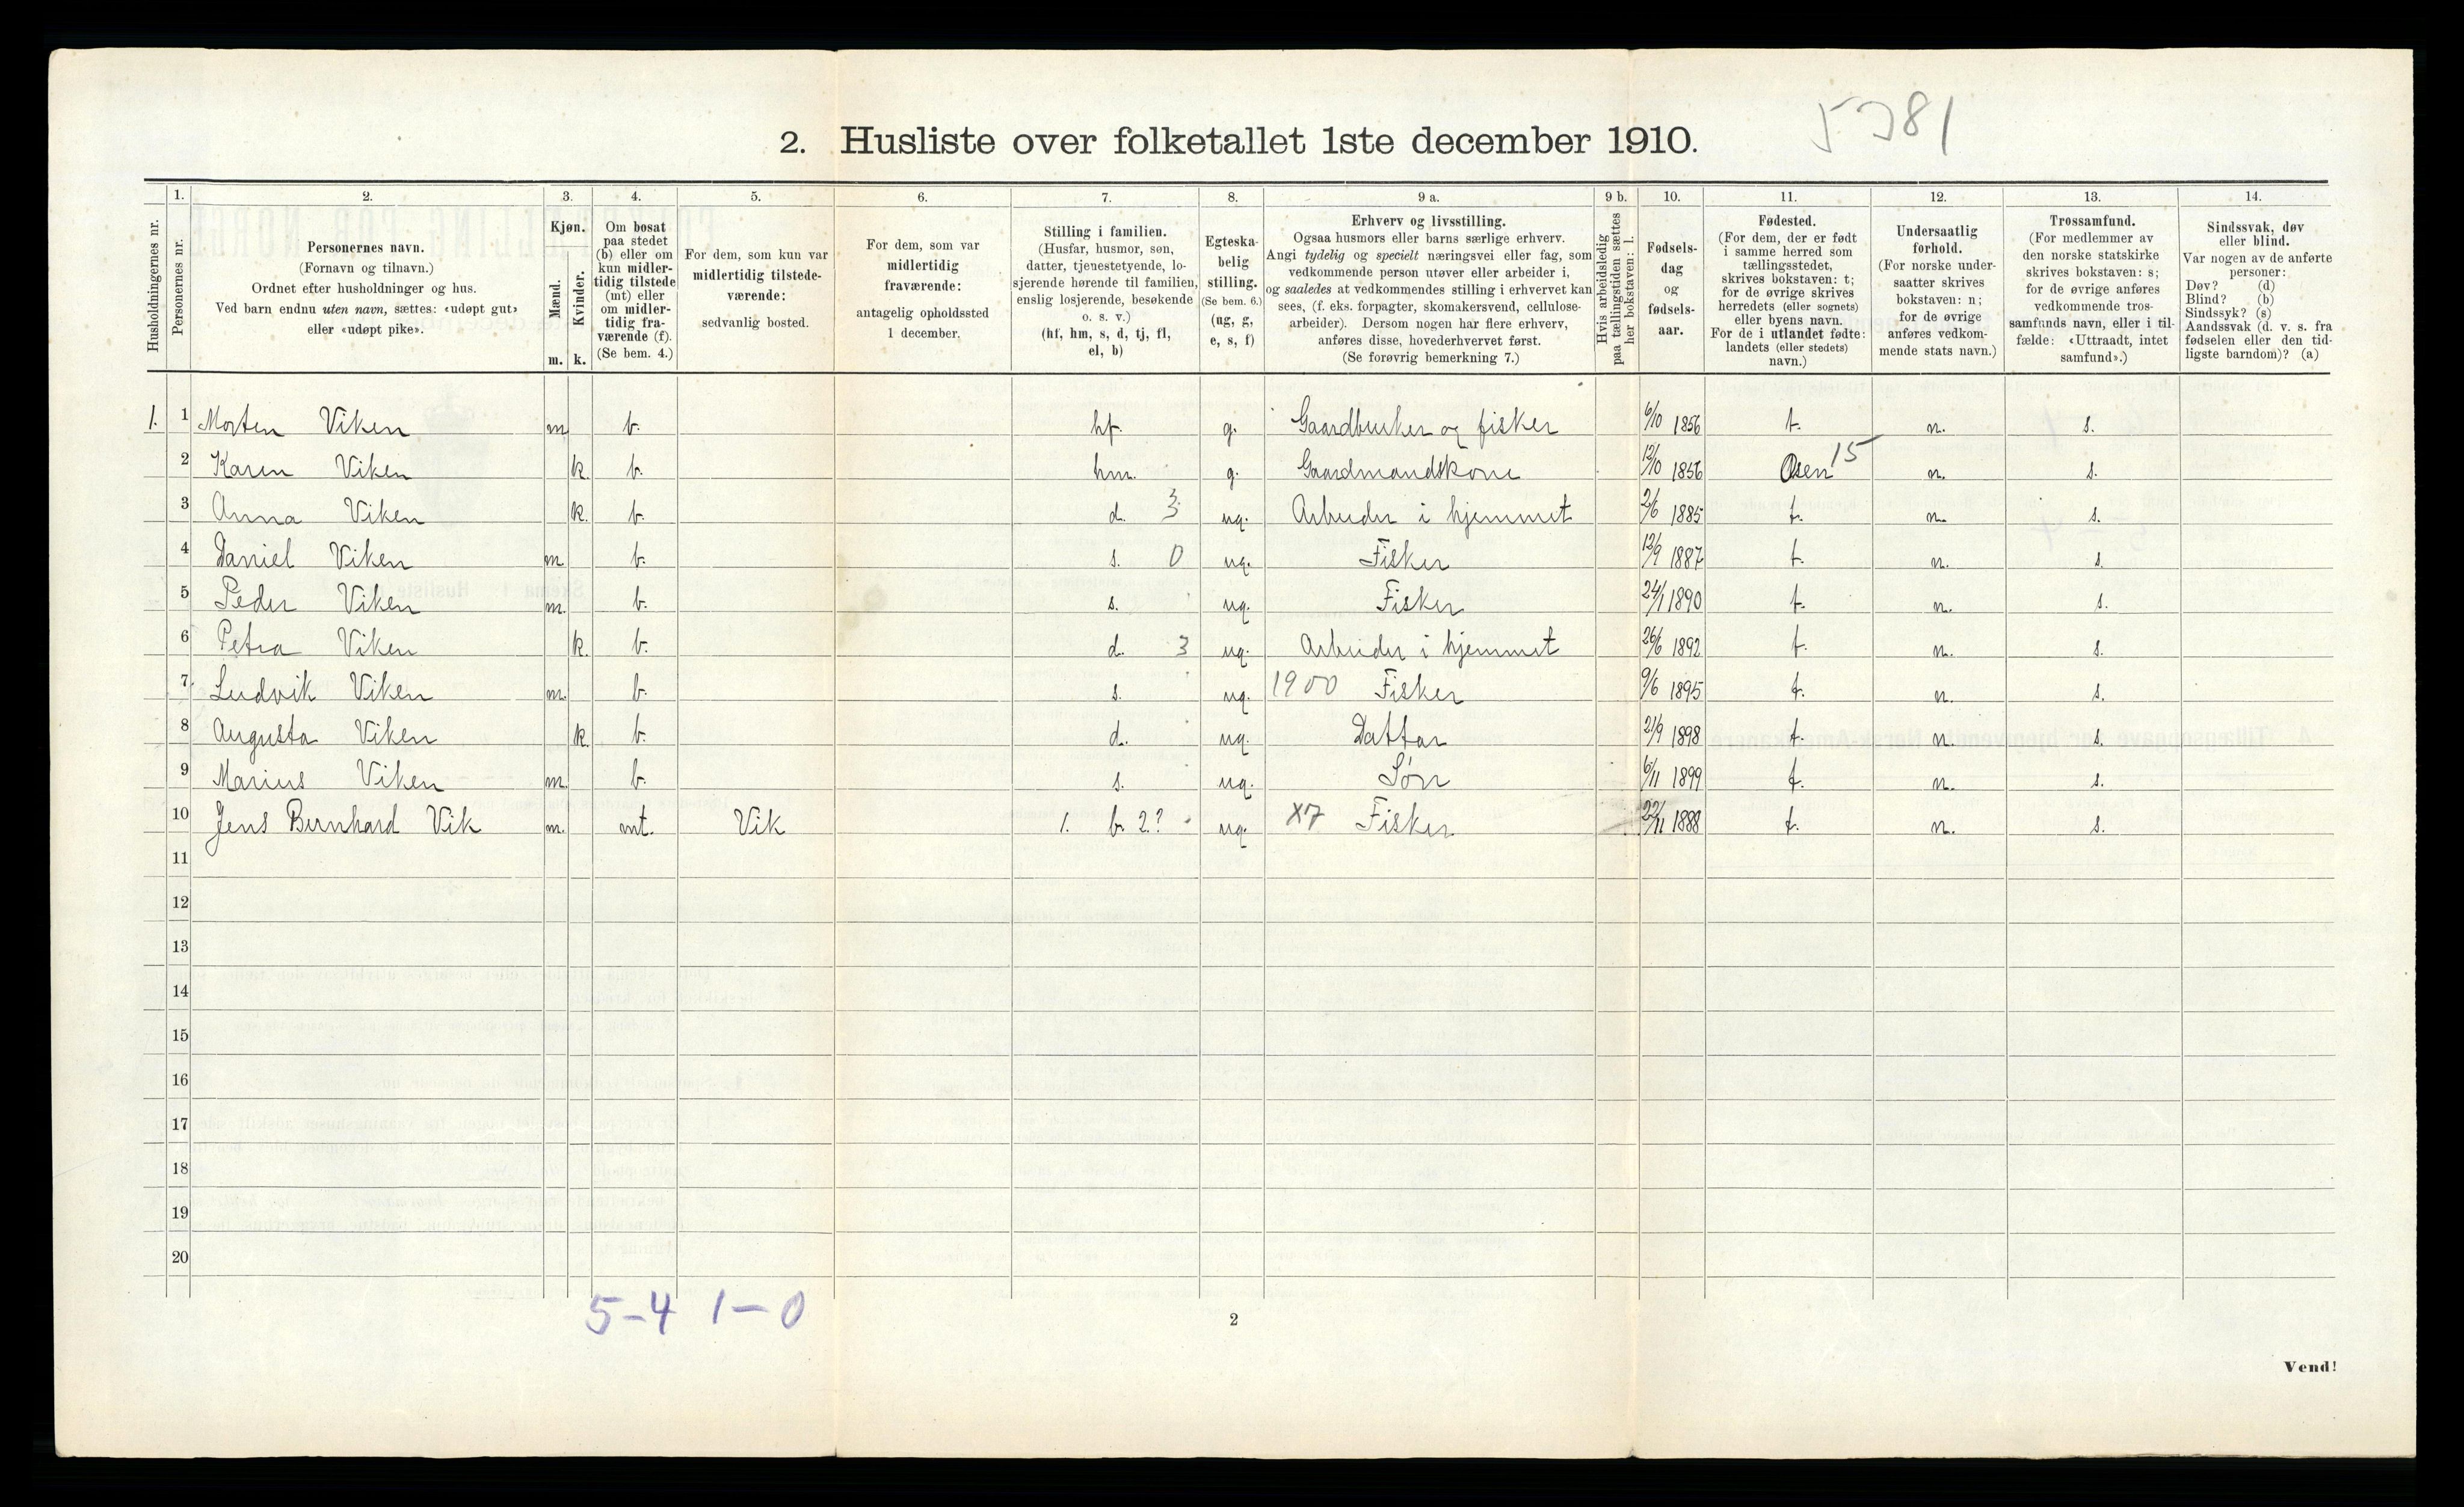 5381
2. Husliste over folketallet 1ste december 1910.
Husholdningernes nr.
1. Personernes nr.
2. Personernes navn.
(Fornavn og tilnavn.)
Ordnet efter husholdninger og hus.
Ved barn endnu uten navn, sættes: «udøpt gut»
eller «udøpt pike».
3. Kjøn.
Mænd. m.
Kvinder. k.
4. Om bosat
paa stedet
(b) eller om
kun midler-
tidig tilstede
(mt) eller
om midler-
tidig fra-
værende (f).
(Se bem. 4.)
5. For dem, som kun var
midlertidig tilstede-
værende:
sedvanlig bosted.
6. For dem, som var
midlertidig
fraværende:
antagelig opholdssted
1 december.
7. Stilling i familien.
(Husfar, husmor, søn,
datter, tjenestetyende, lo-
sjerende hørende til familien,
enslig losjerende, besøkende
o. s. v.)
(hf, hm, s, d, tj, fl,
el, b)
8. Egteska-
belig
stilling.
(Se bem. 6.)
(ug, g,
e, s, f)
9 a. Erhverv og livsstilling.
Ogsaa husmors eller barns særlige erhverv.
Angi tydelig og specielt næringsvei eller fag, som
vedkommende person utøver eller arbeider i,
og saaledes at vedkommendes stilling i erhvervet kan
sees, (f. eks. forpagter, skomakersvend, cellulose-
arbeider). Dersom nogen har flere erhverv,
anføres disse, hovederhvervet først.
(Se forøvrig bemerkning 7.)
9 b. Hvis arbeidsledig
paa tællingstiden sættes
her bokstaven: l.
10. Fødsels-
dag
og
fødsels-
aar.
11. Fødested.
(For dem, der er født
i samme herred som
tællingsstedet,
skrives bokstaven: t;
for de øvrige skrives
herredets (eller sognets)
eller byens navn.
For de i utlandet fødte:
landets (eller stedets)
navn.)
12. Undersaatlig
forhold.
(For norske under-
saatter skrives
bokstaven: n;
for de øvrige
anføres vedkom-
mende stats navn.)
13. Trossamfund.
(For medlemmer av
den norske statskirke
skrives bokstaven: s;
for de øvrige anføres
vedkommende tros-
samfunds navn, eller i til-
fælde: «Uttraadt, intet
samfund».)
14. Sindssvak, døv
eller blind.
Var nogen av de anførte
personer:
Døv? (d)
Blind? (b)
Sindssyk? (s)
Aandssvak (d. v. s. fra
fødselen eller den tid-
ligste barndom)? (a)
1. 1 Morten Viken m b. hf. g. Gaardbruker og fisker 6/10 1856 t. n. s.
2 Karen Viken k. b. hm. g. Gaardmandskone 12/10 1856 Osen 15 n. s.
3 Anna Viken k. b. d. 3 ug. Arbeider i hjemmet 2/6 1885 t. n. s.
4 Daniel Viken m b. s. 0 ug. Fisker 12/9 1887 t. n. s.
5 Peder Viken m. b. s. ug. Fisker 24/1 1890 t. n. s.
6 Petra Viken k. b. d. 3 ug. Arbeider i hjemmet 26/6 1892 t. n. s.
7 Ludvik Viken m. b. s. ug. 1900 Fisker 9/6 1895 t. n. s.
8 Augusta Viken k. b. d. ug. Dattar 21/9 1898 t. n. s.
9 Marius Viken m. b. s. ug. Søn 6/11 1899 t. n. s.
10 Jens Bernhard Vik m. mt. Vik 1. b 2? ug. X7 Fisker 22/11 1888 t. n. s.
11
12
13
14
15
16
17
18
19
20
5-4 1-0
2
Vend!